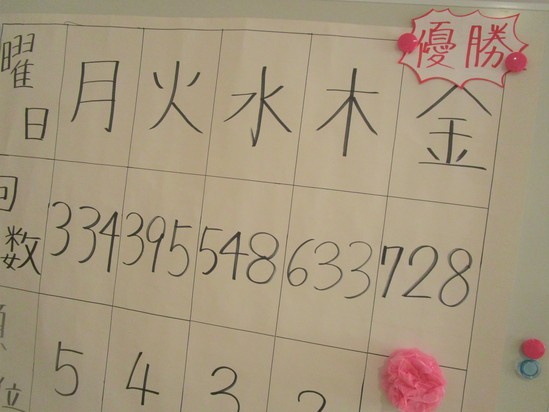 優勝
曜日 月 火 水 木 金
回数 334 395 548 633 728
順位 5 4 3 2